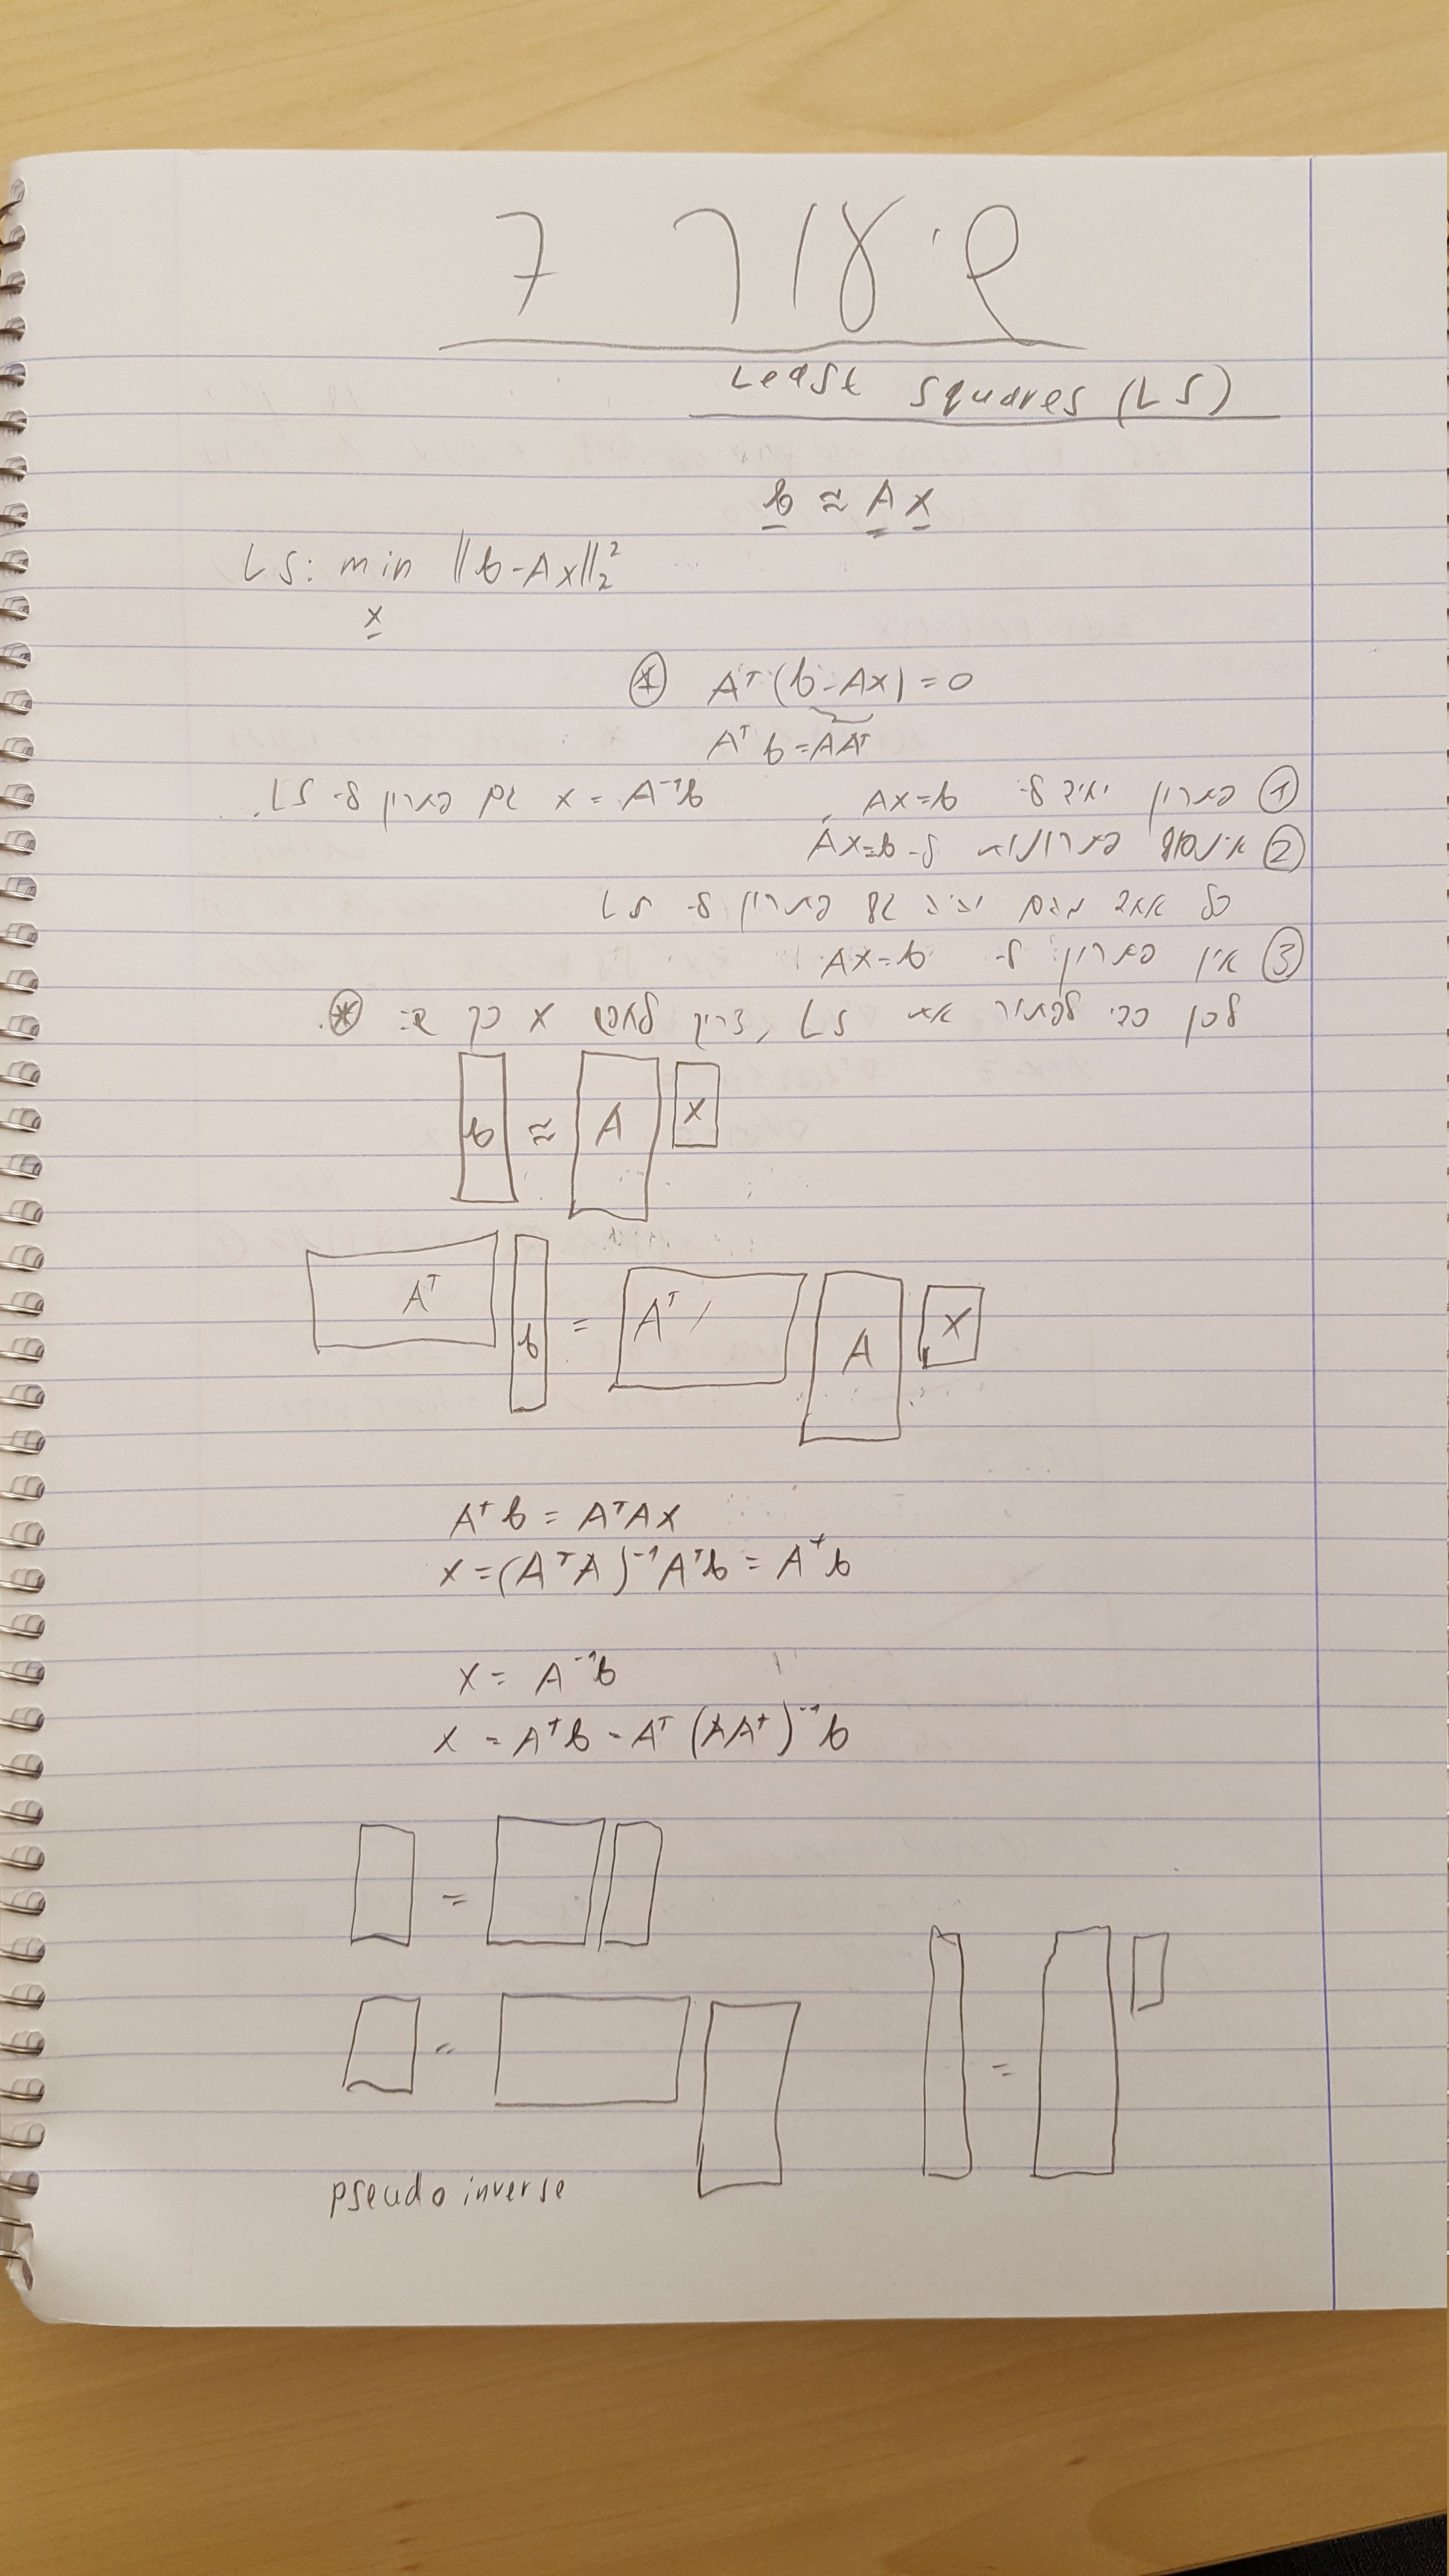 שיעור 7
Least Squares (LS)
b ≈ A x
LS: min ‖b-Ax‖₂²
x
⊛ Aᵀ(b-Ax)=0
Aᵀb=AAᵀ
① פתרון יחיד ל- Ax=b , x = A⁻¹b גם פתרון ל- LS.
② אינסוף פתרונות ל- Ax=b
כל אחד מהם יהיה גם פתרון ל- LS
③ אין פתרון ל- Ax=b
לכן כדי לפתור את LS, צריך לחפש x כך ש: ⊛.
b ≈ A x
Aᵀ b = Aᵀ A x
Aᵀb = AᵀAx
x = (AᵀA)⁻¹Aᵀb = A⁺b
x = A⁻¹b
x = A⁺b - Aᵀ(AAᵀ)⁻¹b
=
=
=
pseudo inverse